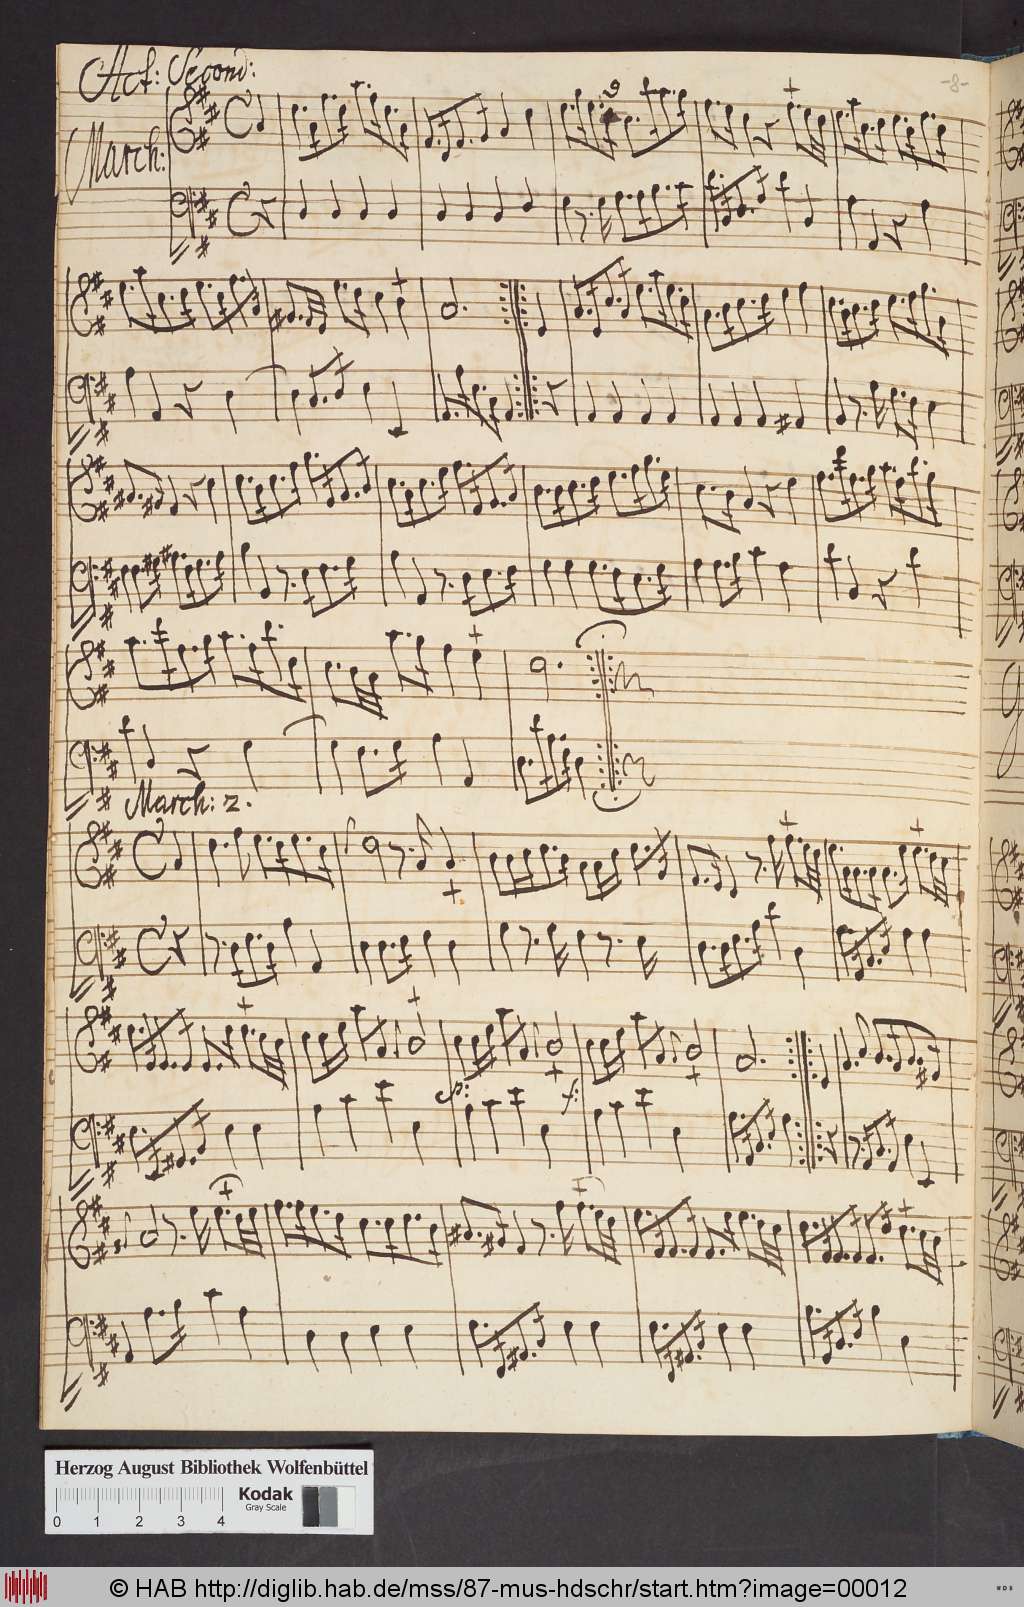 Act: Second:
-8-
March:
March: 2.
p: f:
Herzog August Bibliothek Wolfenbüttel
Kodak
Gray Scale
0 1 2 3 4
© HAB http://diglib.hab.de/mss/87-mus-hdschr/start.htm?image=00012
WDB